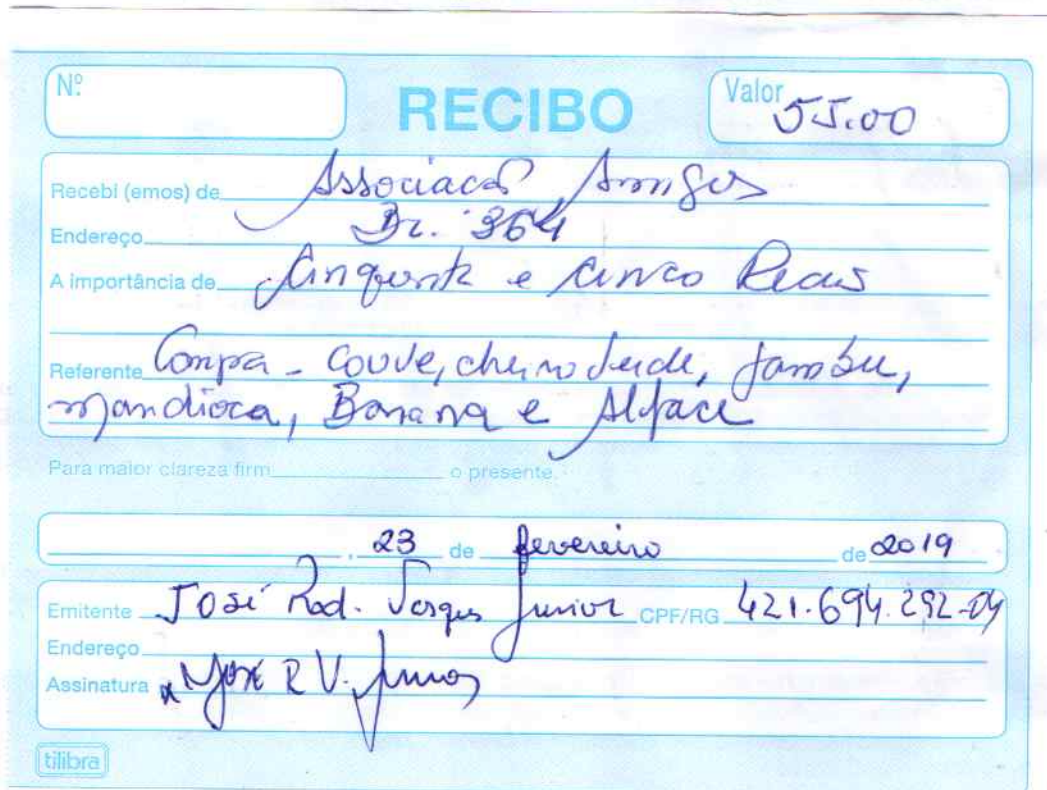 Nº
RECIBO
Valor 55.00
Recebi (emos) de Associacaõ Amigos
Endereço Br. 364
A importância de Cinquenta e Cinco Reais
Referente Compra - Couve, cheiro Verde, Jambu,
mandioca, Banana e Alface
Para maior clareza firm o presente.
, 23 de fevereiro de 2019
Emitente José Rod. Junior CPF/RG 421.694.292-04
Endereço
Assinatura José R V. Junior
tilibra